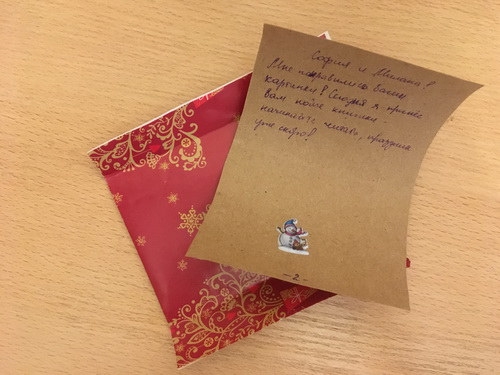 София и Милана!
Мне понравились ваши
картинки! Сегодня я принёс
Вам новые книжки
начинайте читать, праздник
уже скоро!
— 2 —